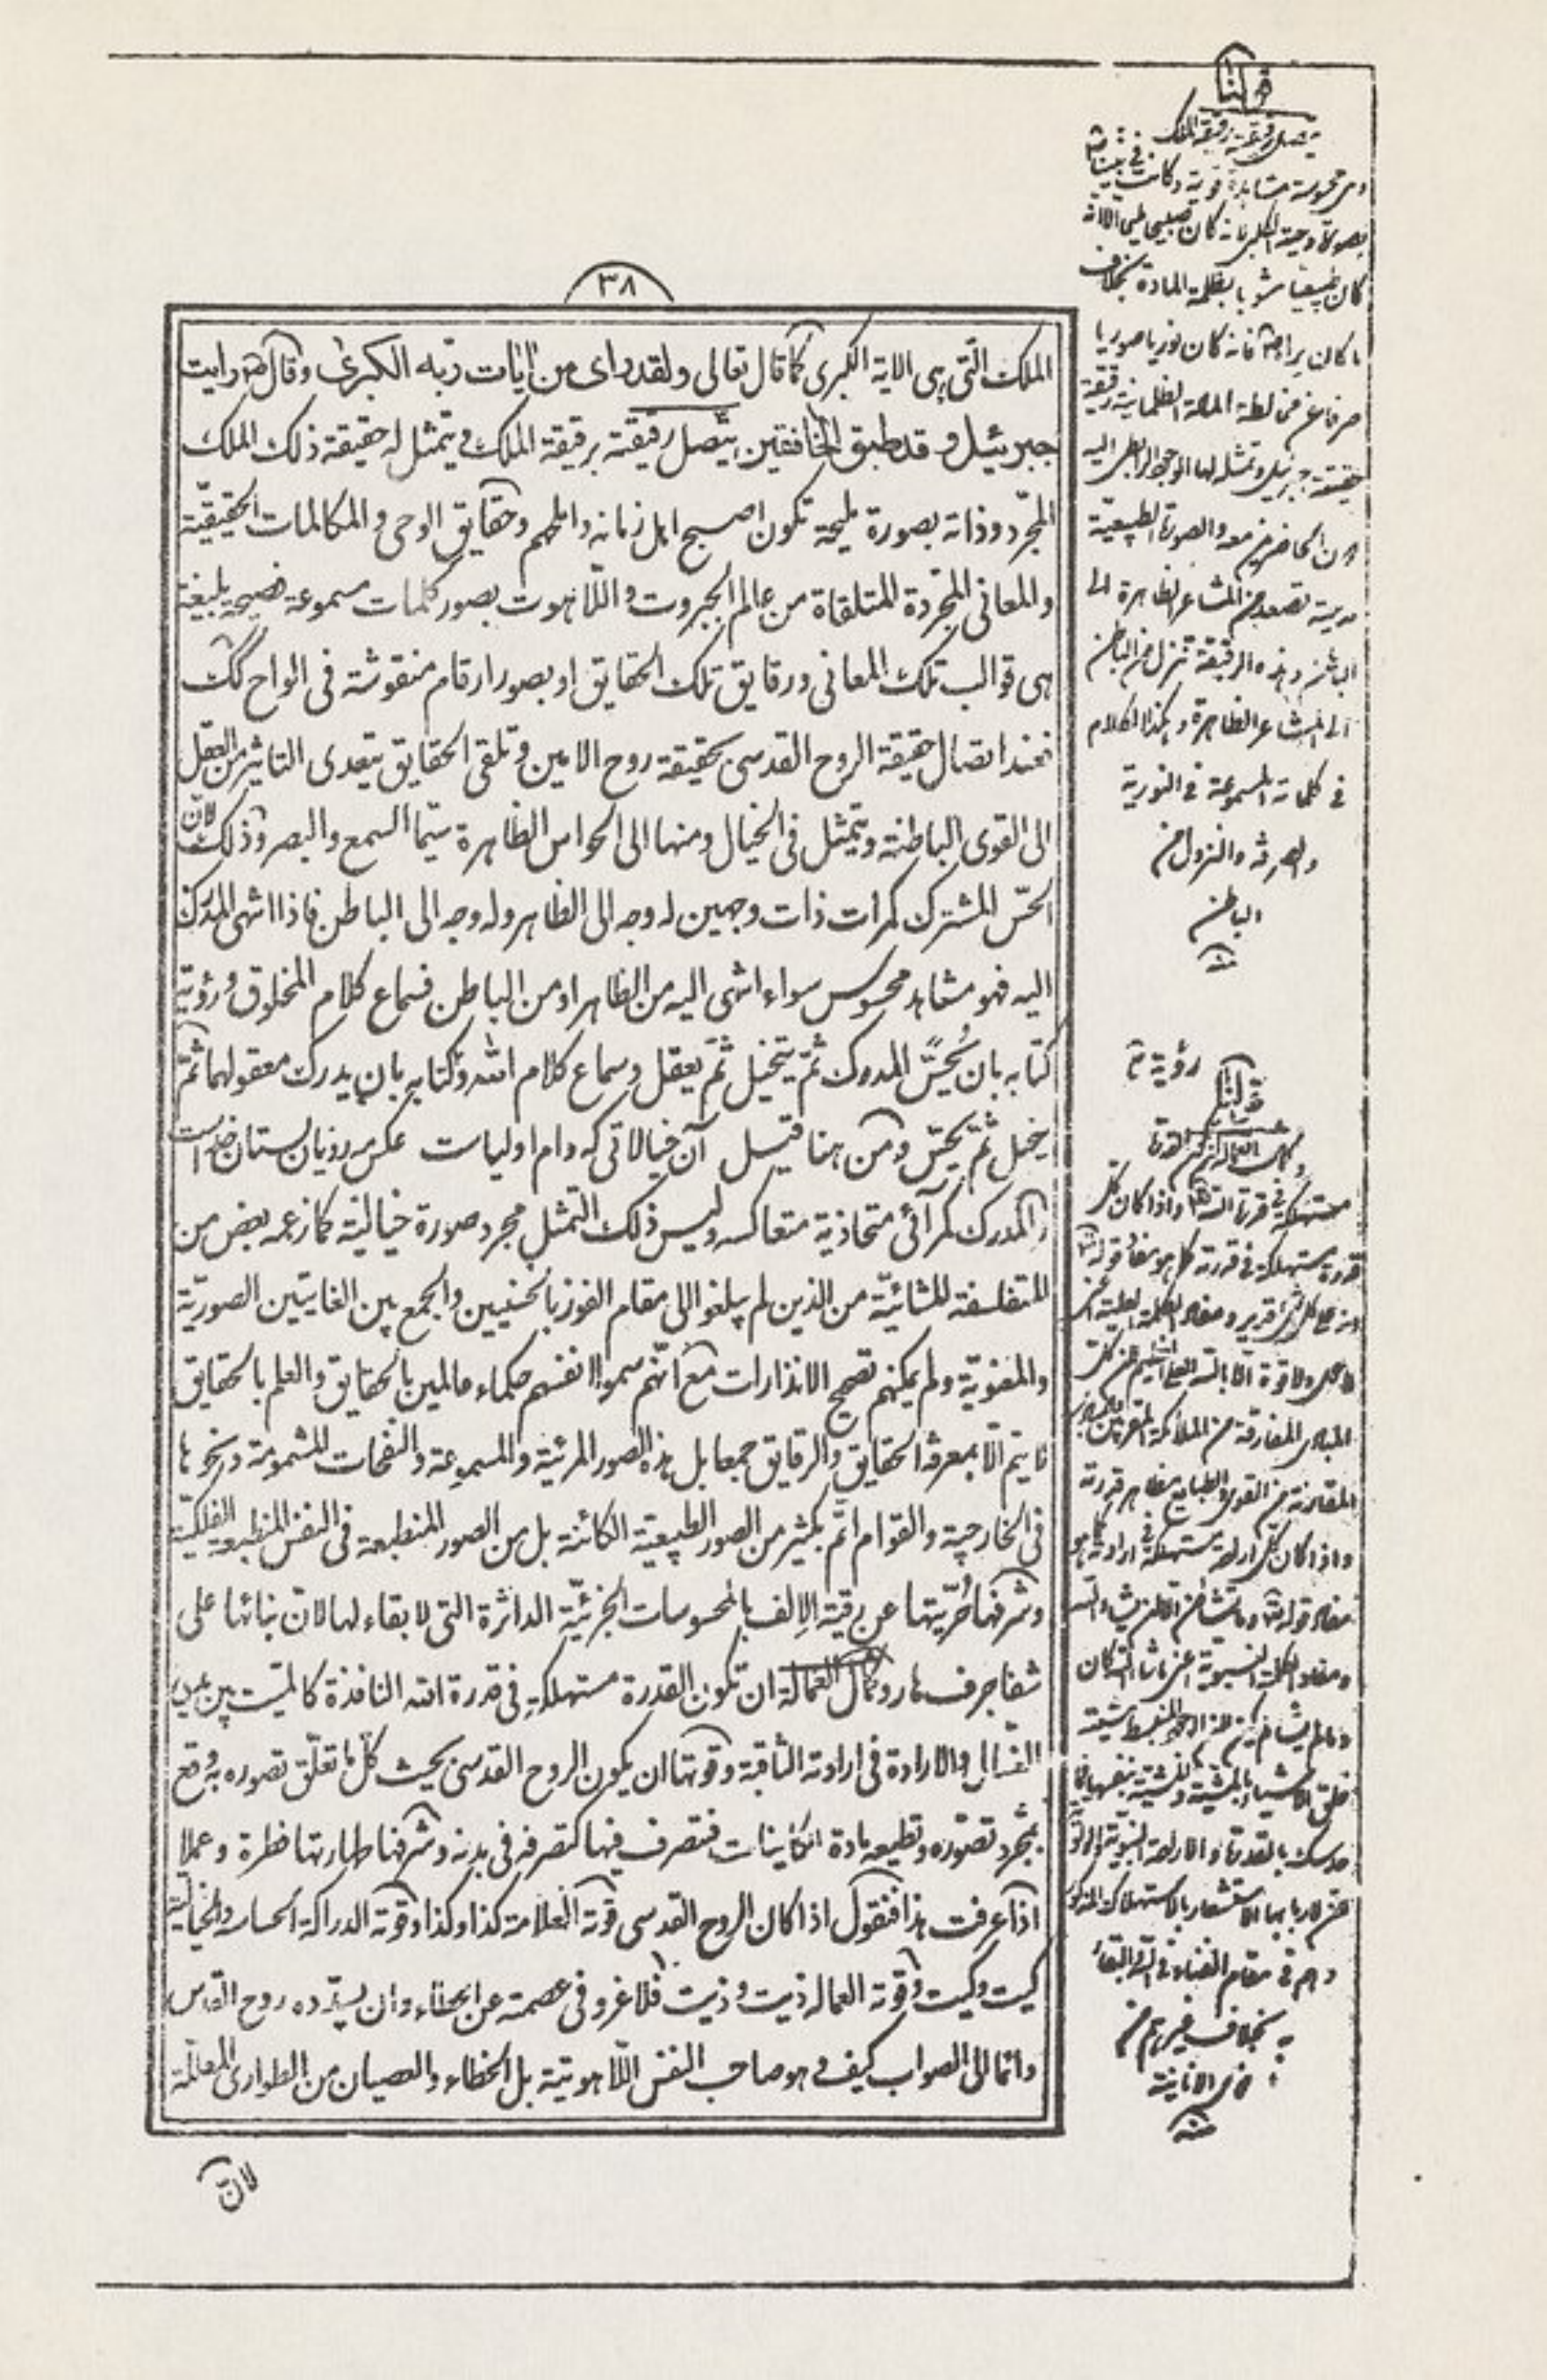 ٣٨
الملك الّتى هى الاية الكبرى كما قال تعالى ولقد راى من ايات ربّه الكبرى وقال ص رايت
جبرئيل و قد طبق الخافقين يتّصل رقيقته برقيقة الملك ويتمثل له حقيقة ذلك الملك
المجرّد وذاته بصورة مليحة تكون اصبح اهل زمانه واملحهم وحقايق الوحى والمكالمات الحقيقيّة
والمعانى المجرّدة المتلقاة من عالم الجبروت واللّاهوت بصور كلمات مسموعة فصيحة بليغة
هى قوالب تلك المعانى ورقايق تلك الحقايق او بصور ارقام منقوشة فى الواح كك
فعند اتصال حقيقة الروح القدسى بحقيقة روح الامين وتلقى الحقايق يتعدى التاثير من العقل
الى القوى الباطنة ويتمثل فى الخيال ومنها الى الحواس الظاهرة سيّما السمع والبصر وذلك لانّ
الحسّ المشترك كمرات ذات وجهين له وجه الى الظاهر وله وجه الى الباطن فاذا انتهى المدرك
اليه فهو مشاهد محسوس سواء انتهى اليه من الظاهر او من الباطن فسماع كلام المخلوق ورؤية
كتابه بان يُحسَّ المدرك ثمّ يتخيل ثمّ يعقل وسماع كلام الله وكتابه بان يدرك معقولهما ثمّ
يخيل ثمّ يحسّ ومن هنا قيل آن خيالاتى كه دام اولياست عكس مه رويان بستان خداست
والمدرك كمرآئى متحاذية متعاكسه وليس ذلك التمثل مجرد صورة خيالية كما زعمه بعض من
المتفلسفة المشائيّة من الذين لم يبلغوا الى مقام الفوز بالحسنيين والجمع بين الغايتين الصوريّة
والمعنويّة ولم يمكنهم تصحيح الانذارات مع انّهم سموا انفسهم حكماء عالمين بالحقايق والعلم بالحقايق
لا يتم الّا بمعرفة الحقايق والرقايق جمعا بل هذه الصور المرئية والمسموعة والنفحات المشمومة ونحوها
فى الخارجية والقوام اتمّ بكثير من الصور الطبيعيّة الكائنة بل من الصور المنطبعة فى النفس المنطبعة الفلكيّة
وشرفها حُرّيتها عن رقيّة الالف بالمحسوسات الجزئيّة الداثرة التى لا بقاء لها لان بنائها على
شفا جرف هار وكمال العمالة ان تكون القدرة مستهلكة فى قدرة الله النافذة كالميّت بين يدى
الغسّال والارادة فى ارادته الثاقبة وقوتها ان يكون الروح القدسى بحيث كلّما تعلّق تصوره به وقع
بمجرد تصوّره وتطيعه مادة الكاينات فتصرف فيها كتصرفه فى بدنه وشرفها طهارتها فطرة وعملا
اذا عرفت هذا فنقول اذا كان الروح القدسى قوته العلامة كذا وكذا وقوته الدراكة الحساسة والخيالية
كيت وكيت وقوته العمالة ذيت وذيت فلا غرو فى عصمة عن الخطاء وان يسدّده روح القدس
دائما الى الصواب كيف وهو صاحب النفس اللّاهوتية بل الخطاء والعصيان من الطوارى المعللة
لان
قولنا
يتصل رقيقته برقيقة الملك
كان طبيعيا مشوبا بظلمة المادة بخلاف
ما كان يراه ص فانه كان نوريا صوريا
الى المشاعر الظاهرة وهكذا الكلام
فى كلماته المسموعة فى النورية
والصرفة والنزول من
الباطن
منه
قولنا
وكمال العمالة ان تكون القدرة
مستهلكة فى قدرة الله واذا كان كل
قدرة مستهلكة فى قدرته كما هو مفاد قوله تعالى
لا حول ولا قوة الّا بالله العلى العظيم
المقارنة من القوى والطبايع مظاهر قدرته
واذا كان كل ارادة مستهلكة فى ارادته كما هو
مفاد قوله تعالى وما تشاؤن الا ان يشاء الله
وهم فى مقام الفناء فى الله والبقاء
به بخلاف غيرهم من
منه